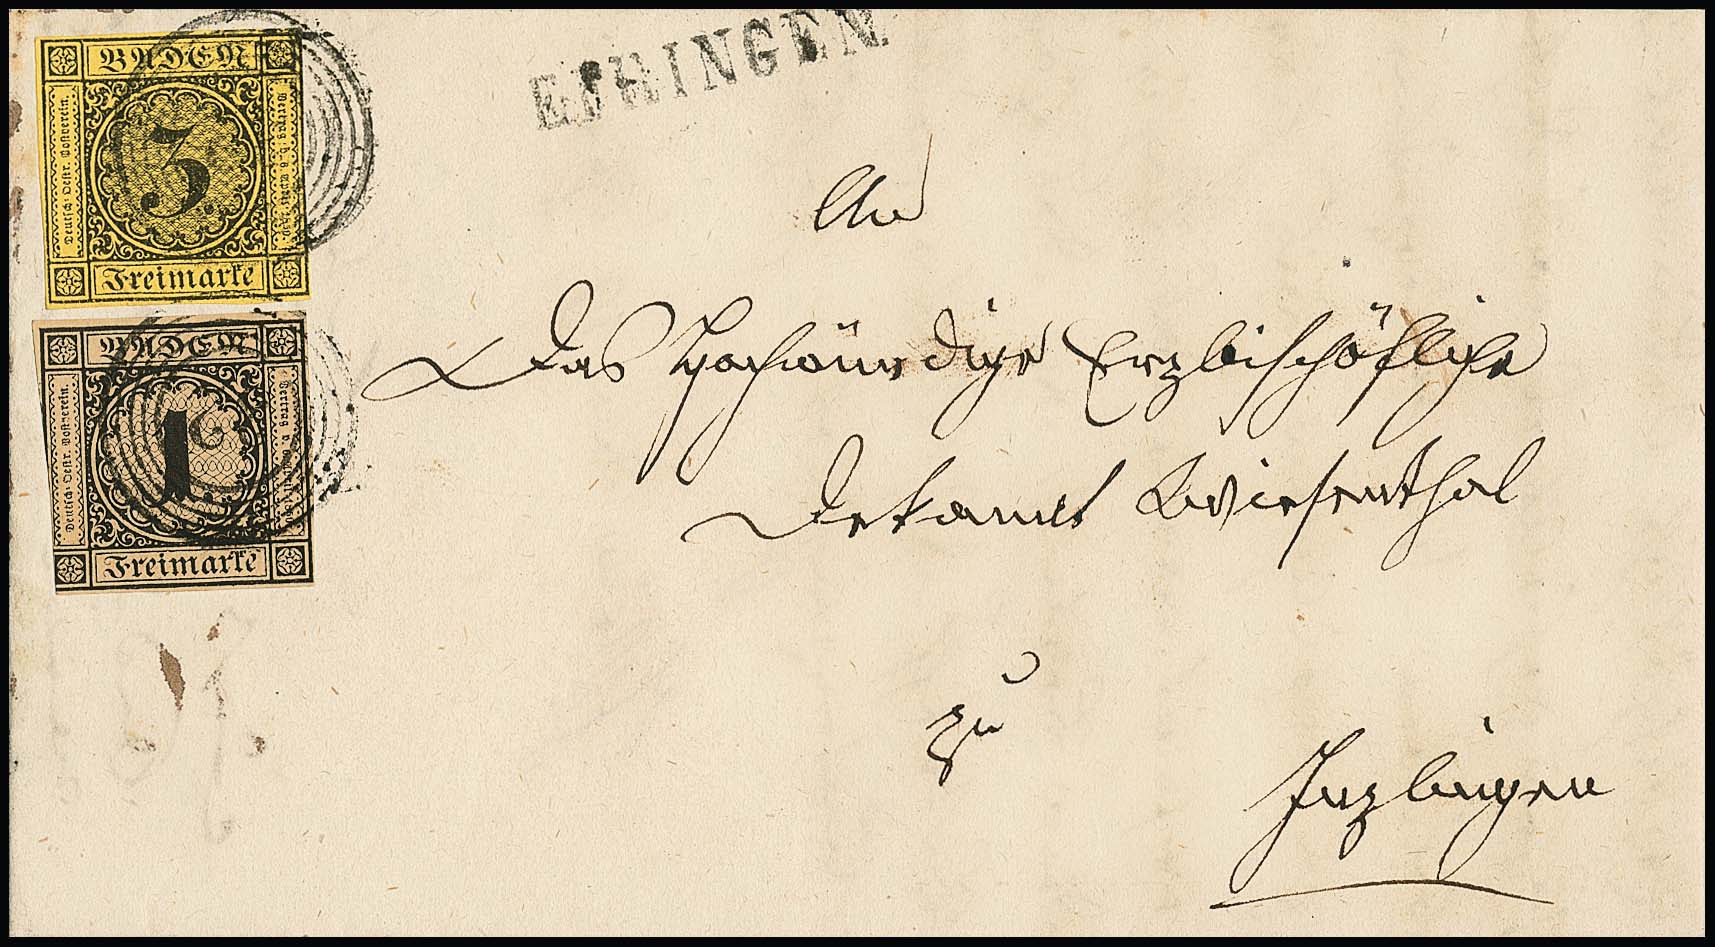 BADEN
Deutsch-Oestr. Postverein.
3.
Freimarke
BADEN
Deutsch-Oestr. Postverein.
1.
Freimarke
An
Das Hochwürdige Erzbischöfliche
Dekamt Wiesenthal
zu
Inzlingen